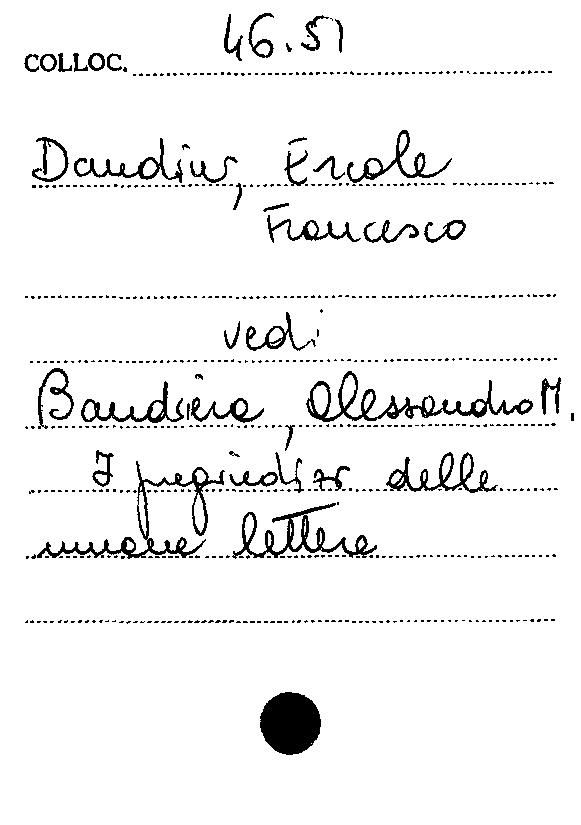 COLLOC. 46.51
Dandini, Ercole
Francesco
vedi
Bandiera, Alessandro M.
I pregiudizi delle
umane lettere